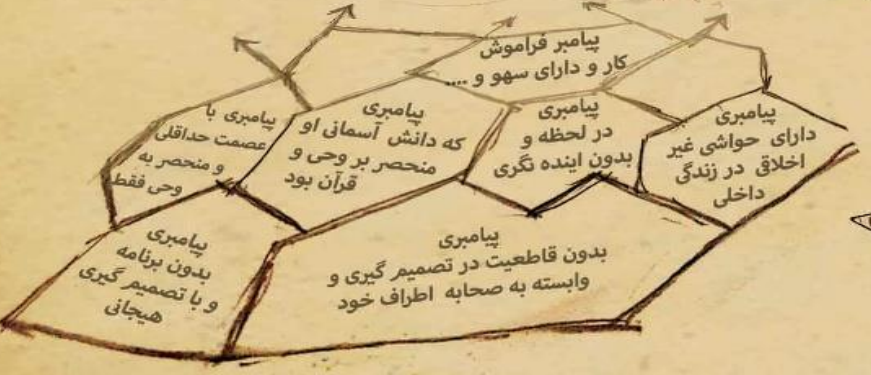 پیامبر فراموش
کار و دارای سهو و ....
پیامبری
دارای حواشی غیر
اخلاقی در زندگی
داخلی
پیامبری
در لحظه و
بدون اینده نگری
پیامبری
که دانش آسمانی او
منحصر بر وحی و
قرآن بود
پیامبری با
عصمت حداقلی
و منحصر به
وحی فقط
پیامبری
بدون قاطعیت در تصمیم گیری و
وابسته به صحابه اطراف خود
پیامبری
بدون برنامه
و با تصمیم گیری
هیجانی